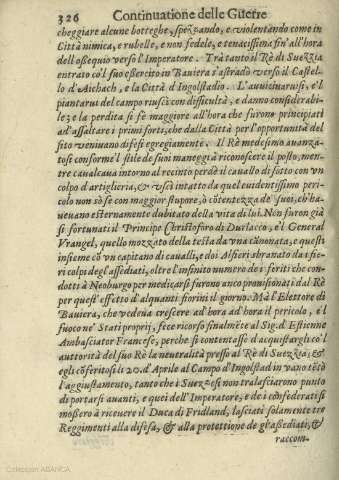 326 Continuatione delle Guerre
cheggiare alcune botteghe, spezzando, e violentando come in
Città nimica, e rubelle, e non fedele, e tenacissima fin'all'hora
dell'ossequio verso l'Imperatore. Trà tanto il Rè di Suezzia
entrato cō'l suo essercito in Bauiera s'astradò verso il Castel-
lo d'Aichach, e la Città d'Ingolstadio. L'auuizinaruisi, e'l
piantarui del campo riuscì con difficultà, e danno considerabi-
le; e la perdita si fè maggiore all'hora che furono principiati
ad'assaltare i primi forti, che dalla Città per l'opportunità del
sito veniuano difesi egregiamente. Il Rè medesimo auanza-
tosi conforme'l stile de suoi maneggi à riconoscere il posto, men-
tre caualcaua intorno al recinto perdè il cauallo di sotto con vn
colpo d'artiglieria, & vscì intatto da quel euidentissimo peri-
colo non sò se con maggior stupore, ò cōtentezza de' suoi, ch'ha-
ueuano esternamente dubitato della vita di lui. Non furon già
sì fortunati il Prencipe Christoforo di Durlacco, e'l General
Vrangel, quello mozzato della testa da vna cānonata, e questi
insieme cō vn capitano di caualli, e doi Alfieri sbranato da i fie-
ri colpi degl'assediati, oltre l'infinito numero de i feriti che con-
dotti à Neoburgo per medicarsi furono anco prouisionati dal Rè
per quest'effetto d'alquanti fiorini il giorno. Mà l'Elettore di
Bauiera, che vedeua crescere ad hora ad hora il pericolo, e'l
fuoco ne' Stati proprij, fece ricorso finalmēte al Sig. d'Estienne
Ambasciator Francese, perche si contentasse d'acquistargli co'l
auttorità del suo Rè la neutralità presso al Rè di Suezzia; &
egli cōferitosi li 20. d'Aprile al Campo d'Ingolstad in vano tētò
l'aggiustamento, tanto che i Suezzesi non tralasciarono punto
di portarsi auanti, e quei dell'Imperatore, e de i confederati si
mossero à riceuere il Duca di Fridland, lasciati solamente tre
Reggimenti alla difesa, & alla protettione de gl'assediati, &
raccom-
Colección ABANCA